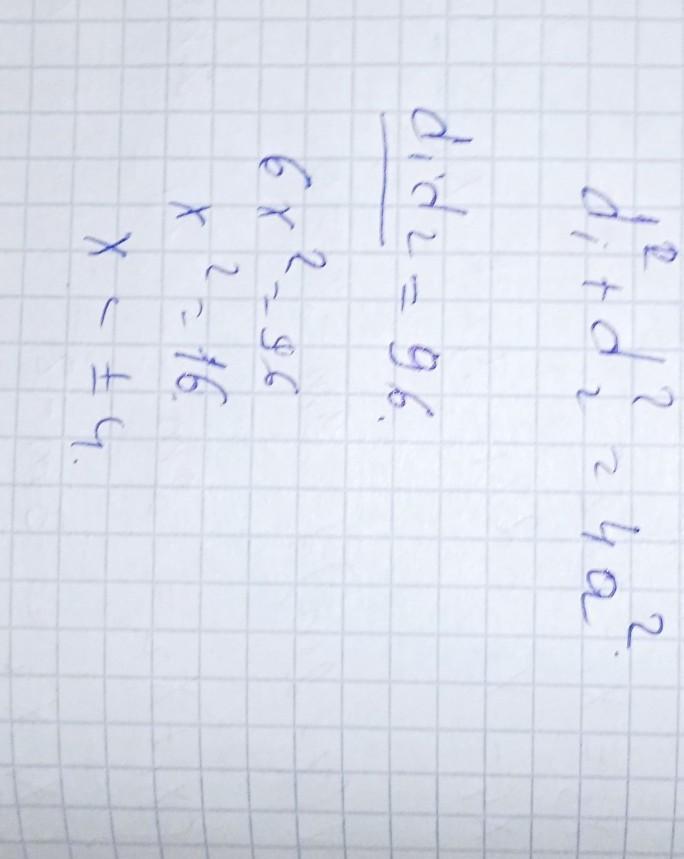 d₁² + d₂² = 4a².
d₁d₂ = 96.
6x² = 96
x² = 16.
x = ± 4.